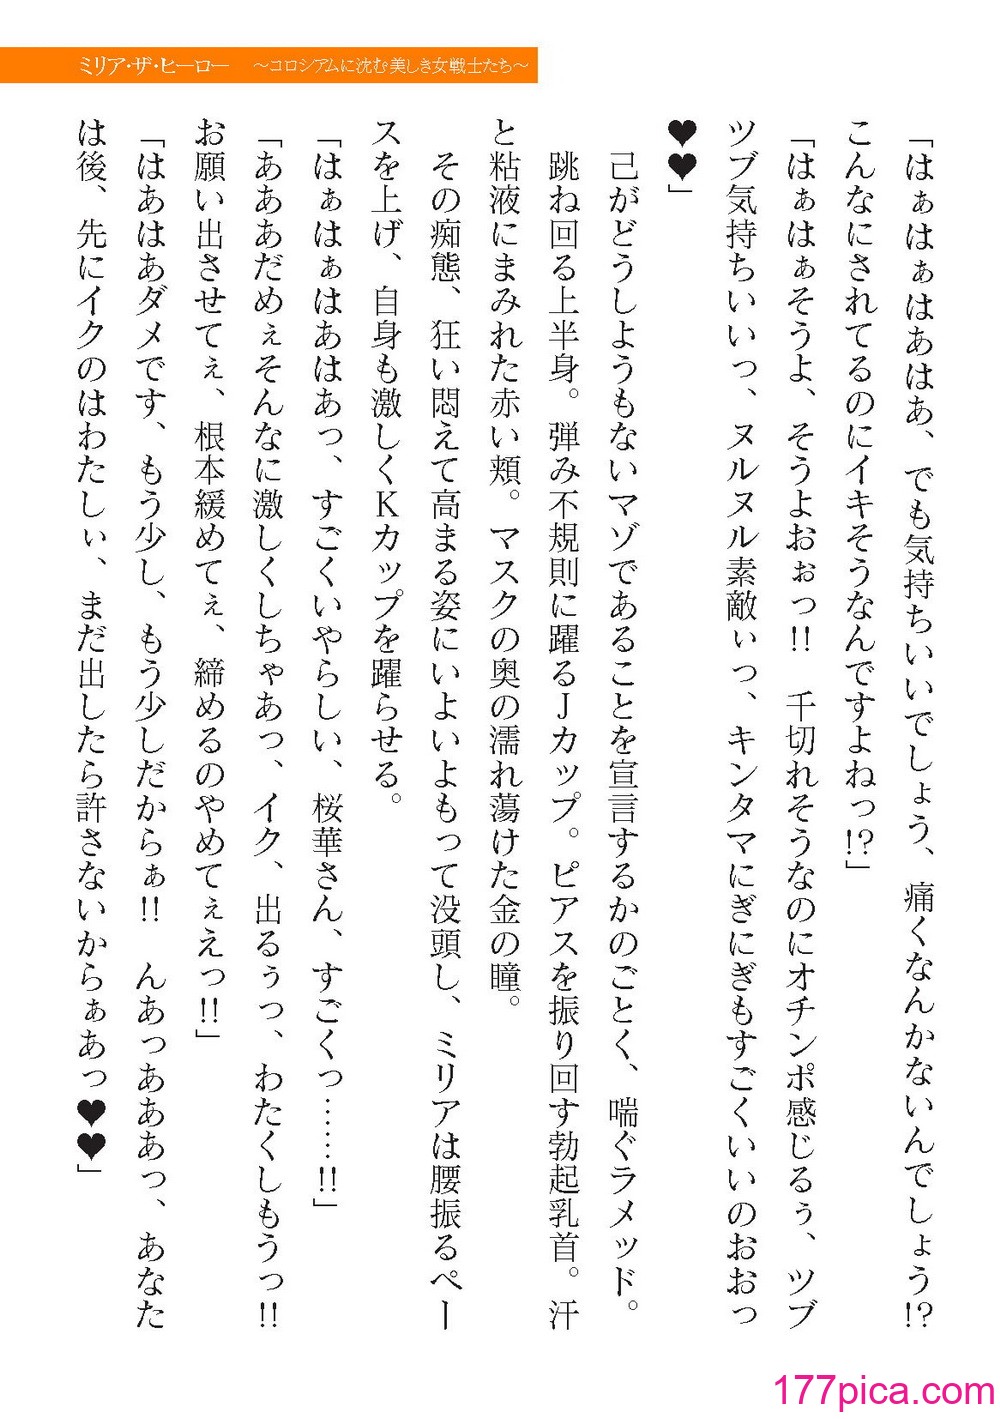 ミリア・ザ・ヒーロー　～コロシアムに沈む美しき女戦士たち～
「はぁはぁはあはあ、でも気持ちいいでしょう、痛くなんかないんでしょう!?
こんなにされてるのにイキそうなんですよねっ!?」
「はぁはぁそうよ、そうよおぉっ!!　千切れそうなのにオチンポ感じるぅ、ツブ
ツブ気持ちいいっ、ヌルヌル素敵ぃっ、キンタマにぎにぎもすごくいいのおおっ
♥♥」
　己がどうしようもないマゾであることを宣言するかのごとく、喘ぐラメッド。
　跳ね回る上半身。弾み不規則に躍るJカップ。ピアスを振り回す勃起乳首。汗
と粘液にまみれた赤い頬。マスクの奥の濡れ蕩けた金の瞳。
　その痴態、狂い悶えて高まる姿にいよいよもって没頭し、ミリアは腰振るペー
スを上げ、自身も激しくKカップを躍らせる。
「はぁはぁはあはあっ、すごくいやらしい、桜華さん、すごくっ……!!」
「あああだめぇそんなに激しくしちゃあっ、イク、出るぅっ、わたくしもうっ!!
お願い出させてぇ、根本緩めてぇ、締めるのやめてぇえっ!!」
「はあはあダメです、もう少し、もう少しだからぁ!!　んあっあああっ、あなた
は後、先にイクのはわたしぃ、まだ出したら許さないからぁあっ♥♥」
177pica.com